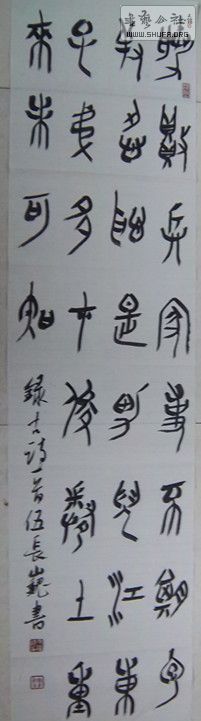 書藝公社
WWW.SHUFA.ORG
勝敗兵家事不期包
羞忍恥是男兒江東
子弟多才俊捲土重
來未可知
錄古詩一首伍長巍書